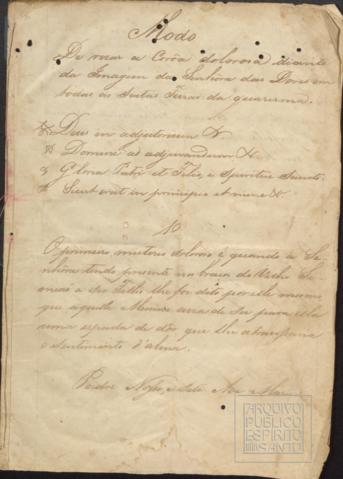 Modo
De resar a Corôa dolorosa diante
da Imagem da Senhora das Dores em
todas as Sextas Feiras da quaresma.
Deus in adjutorium &
Domine ad adjuvandum &
Gloria Patri et Filio, e Spiritui Sancto
Sicut erat in principio et nunc &
1º
O primeiro misterio doloroso é quando a Se-
nhora tendo presente nos braços do Velho Si-
meão a Seo Filho lhe foi dito por elle mesmo
que aquelle Menino avia de Ser para ella
uma espada de dôr que lhe atravessaria
o sentimento d'alma.
Padre Nosso, e Sete Ave Maria
ARQUIVO
PÚBLICO
ESPÍRITO
SANTO